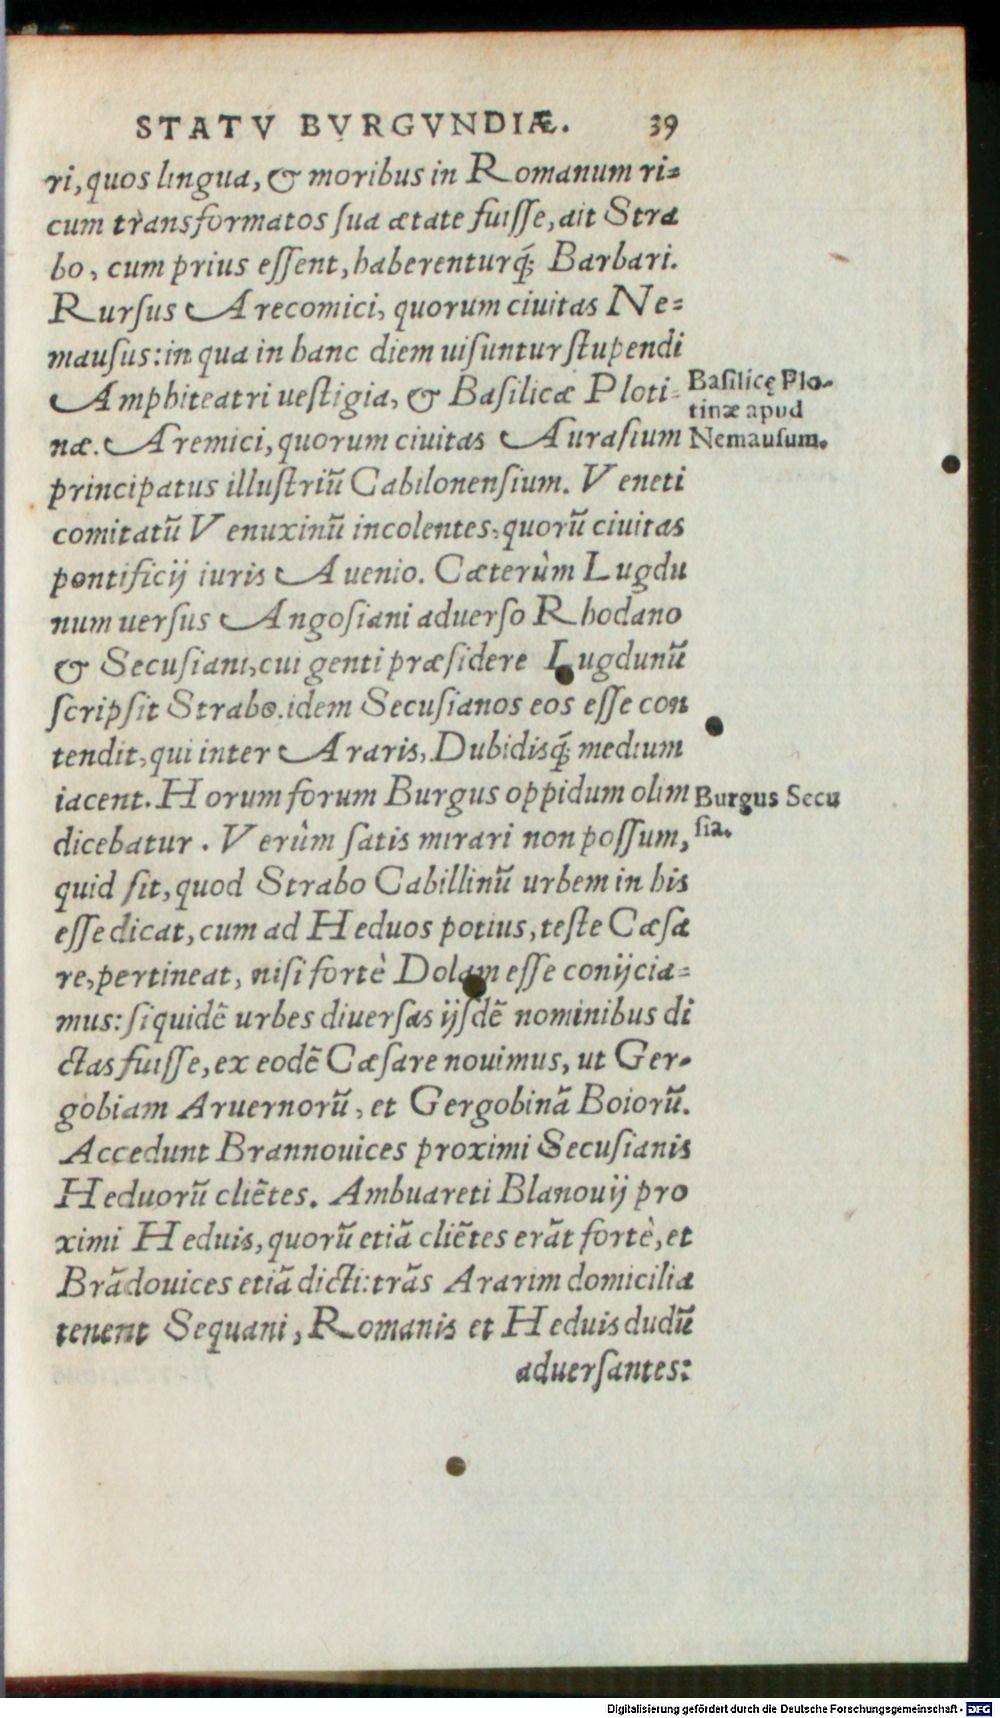 STATV BVRGVNDIÆ. 39
ri, quos lingua, & moribus in Romanum ri=
cum transformatos sua ætate fuisse, ait Stra
bo, cum prius essent, haberenturq́; Barbari.
Rursus Arecomici, quorum ciuitas Ne=
mausus: in qua in hanc diem uisuntur stupendi
Amphiteatri uestigia, & Basilicæ Ploti=
næ. Aremici, quorum ciuitas Aurasium
Basilicę Plo-
tinæ apud
Nemausum.
principatus illustriũ Cabilonensium. Veneti
comitatũ Venuxinũ incolentes, quorũ ciuitas
pontificij iuris Auenio. Cæterùm Lugdu
num uersus Angosiani aduerso Rhodano
& Secusiani, cui genti præsidere Lugdunũ
scripsit Strabo. idem Secusianos eos esse con
tendit, qui inter Araris, Dubidisq́; medium
iacent. Horum forum Burgus oppidum olim
Burgus Secu
sia.
dicebatur. Verùm satis mirari non possum,
quid sit, quod Strabo Cabillinũ urbem in his
esse dicat, cum ad Heduos potius, teste Cæsa
re, pertineat, nisi fortè Dolam esse conijcia=
mus: siquidẽ urbes diuersas ijsdẽ nominibus di
ctas fuisse, ex eodẽ Cæsare nouimus, ut Ger-
gobiam Aruernorũ, et Gergobinã Boiorũ.
Accedunt Brannouices proximi Secusianis
Heduorũ cliẽtes. Ambuareti Blanouij pro
ximi Heduis, quorũ etiã cliẽtes erãt fortè, et
Brãdouices etiã dicti: trãs Ararim domicilia
tenent Sequani, Romanis et Heduis dudũ
aduersantes:
Digitalisierung gefördert durch die Deutsche Forschungsgemeinschaft - DFG